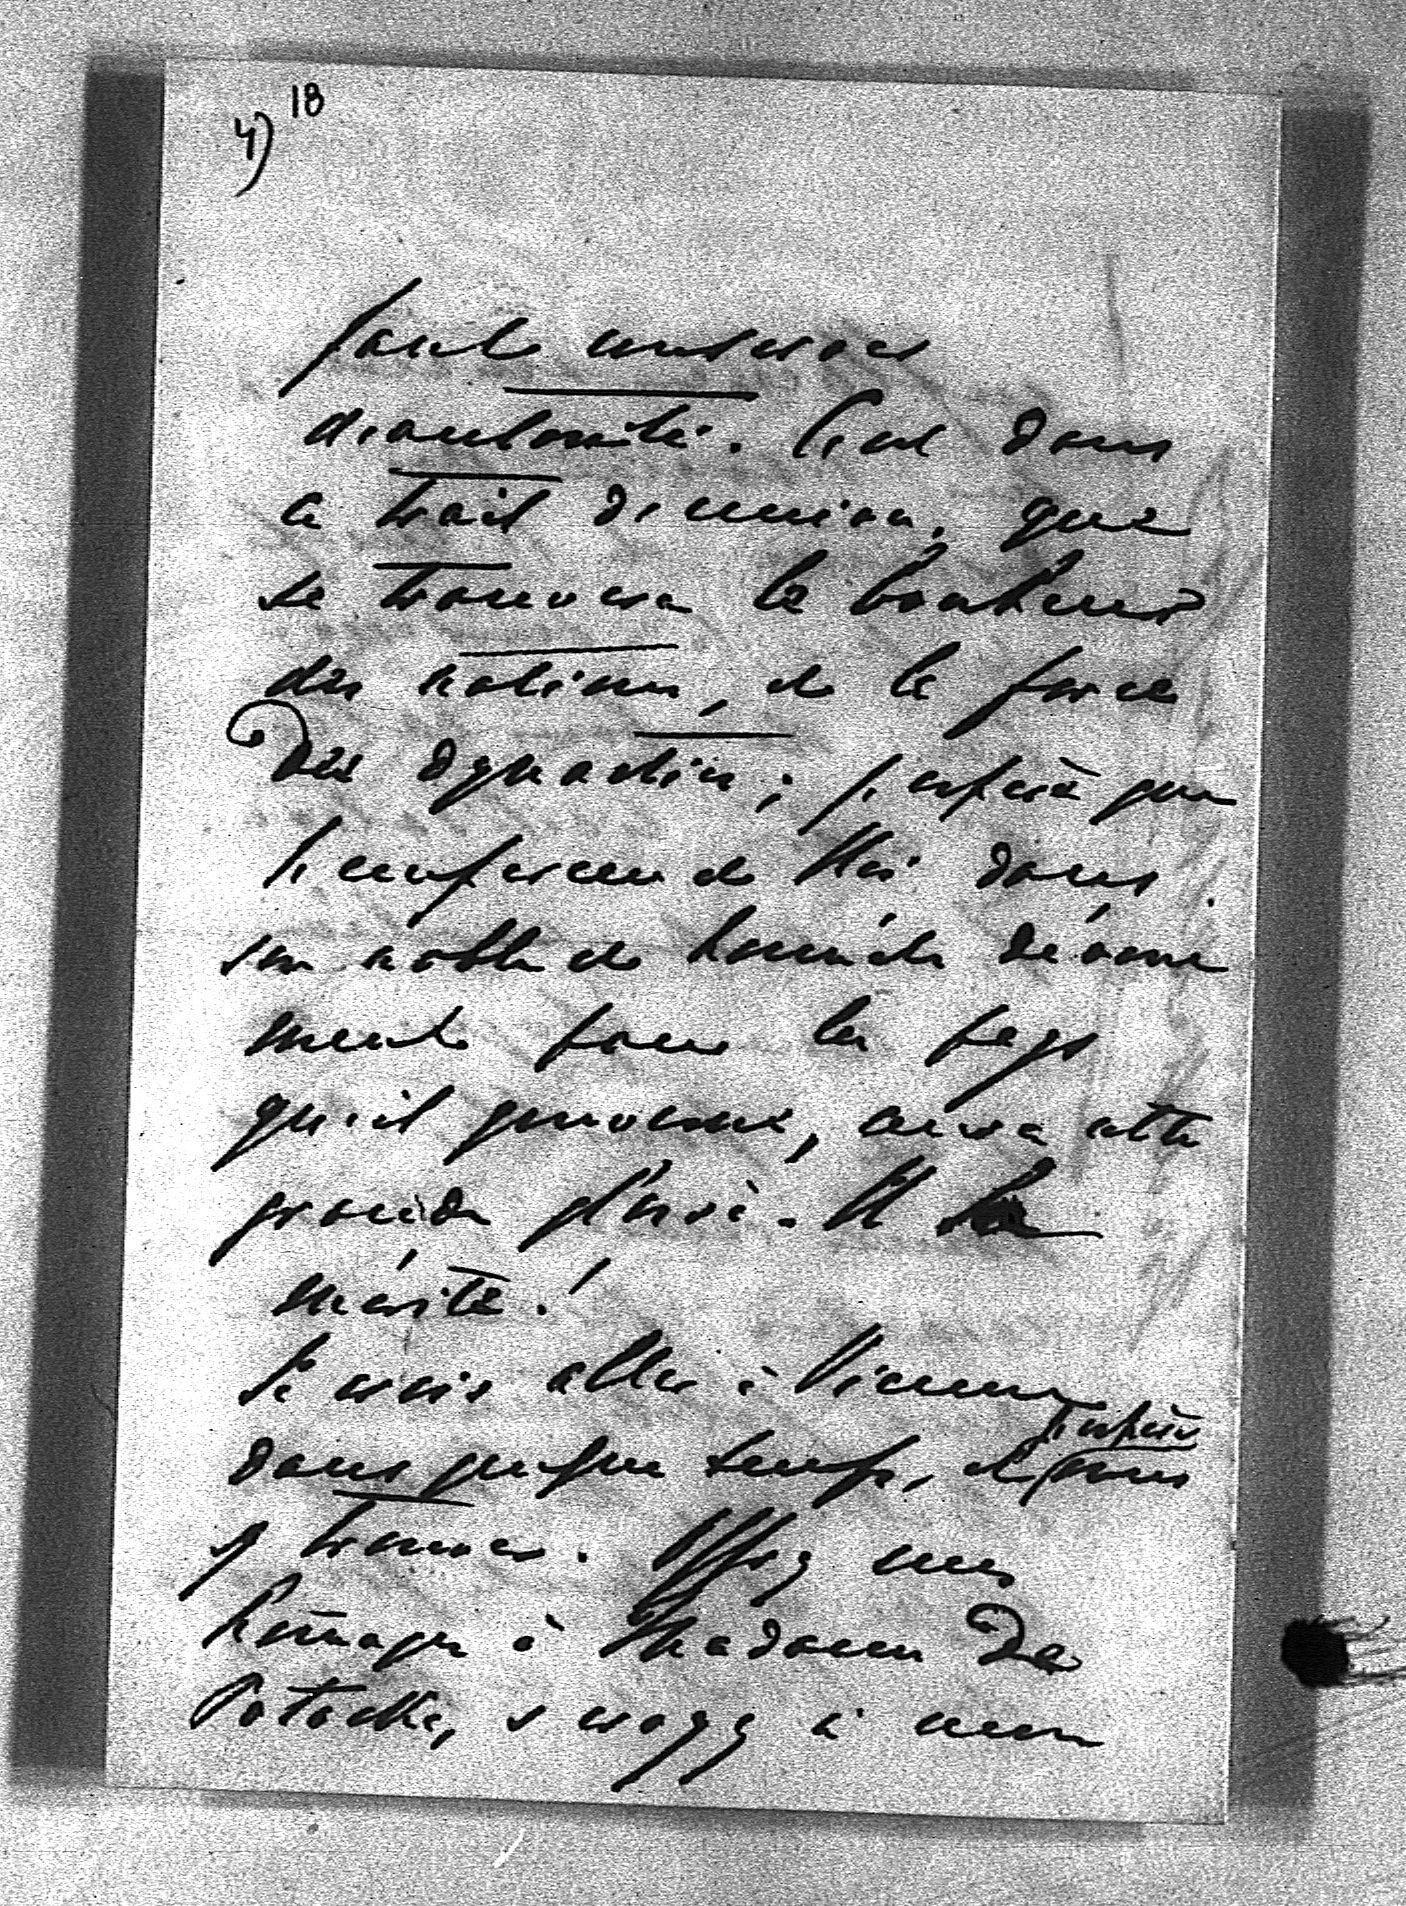 4) 18
faut conserver
d'autorité. C'est dans
ce trait d'union, que
se trouvera le bonheur
des nations, et la force
des dynasties; j'espère que
l'empereur et Roi dans
son noble et honnête dévoue
ment pour les pays
qu'il gouverne, aura cette
grande gloire. Il la
mérite!
Je vais aller à Vienne
dans quelque temps, et j'espère vous
y trouver. Offrez mes
hommages à Madame de
Potocka, croyez à mon